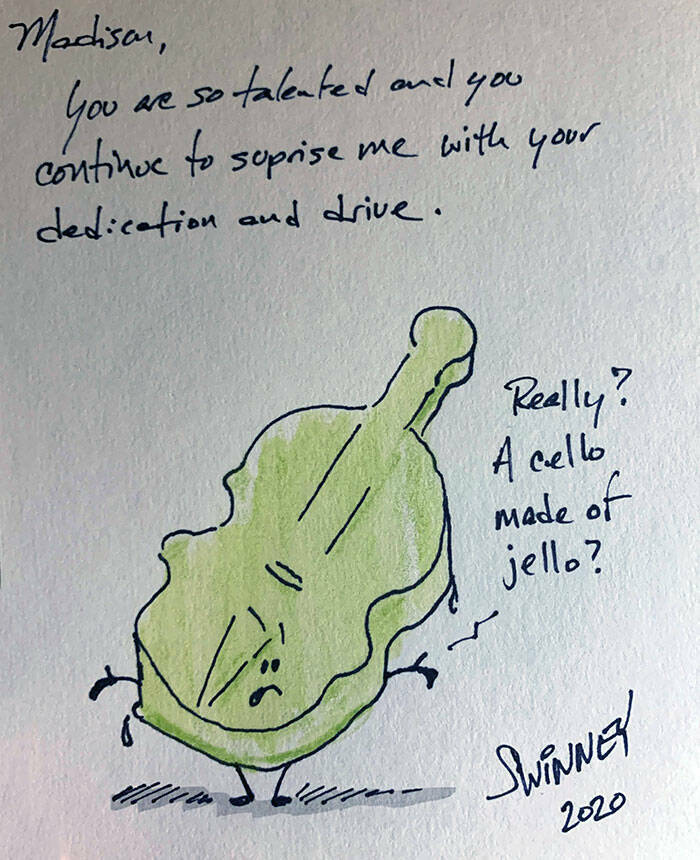 Madison,
You are so talented and you
continue to suprise me with your
dedication and drive.
Really?
A cello
made of
jello?
SWINNEY
2020